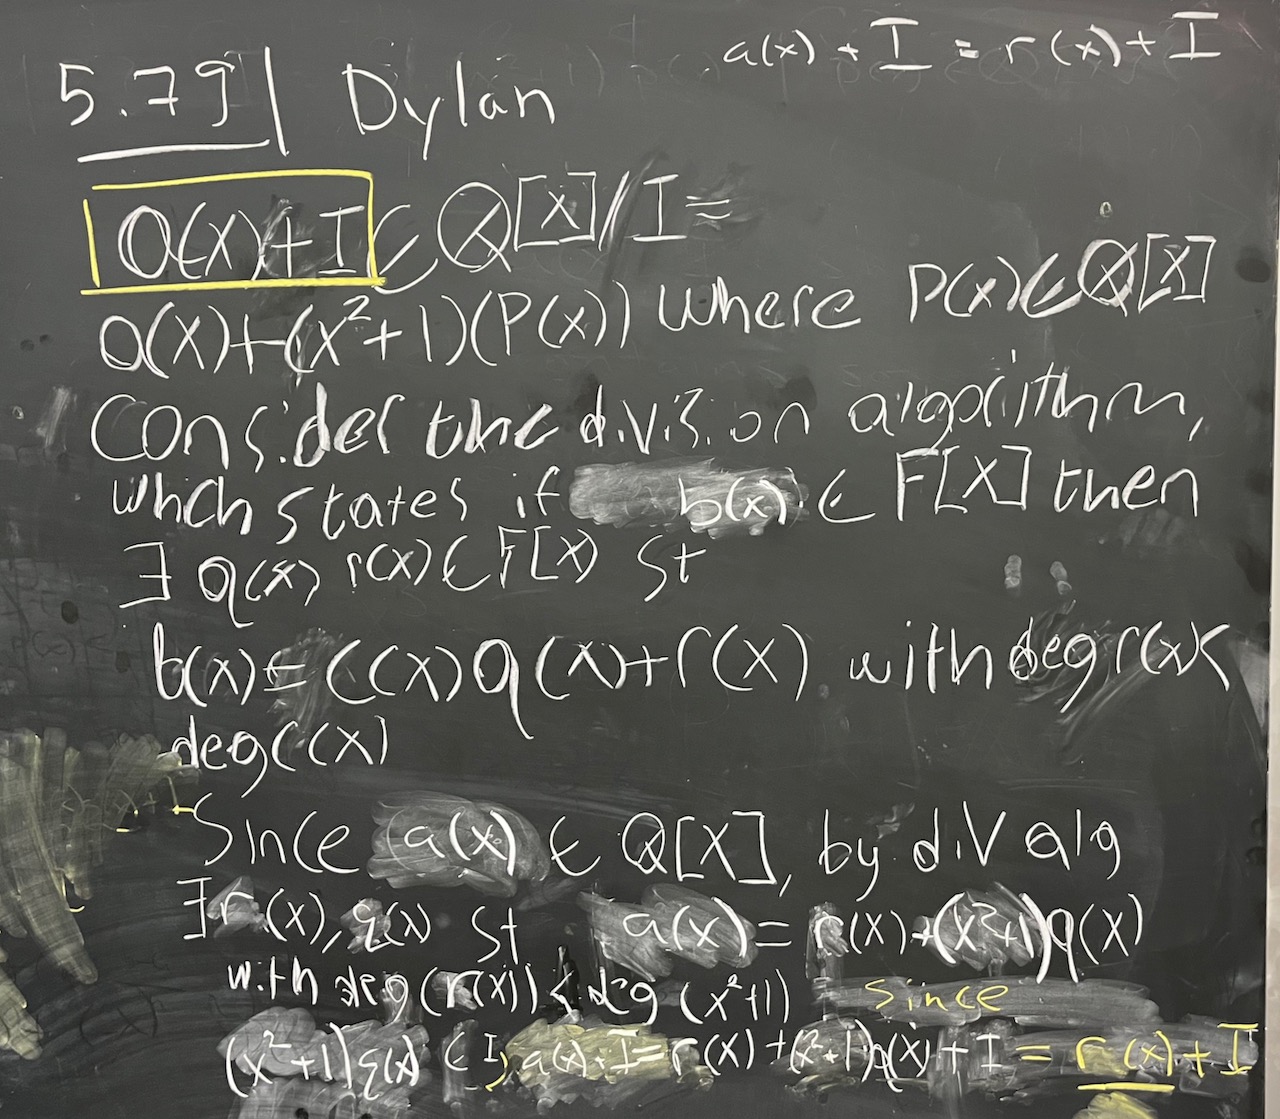 a(x) + I = r(x) + I
5.79 | Dylan
a(x)+I ∈ Q[x]/I =
a(x)+(x²+1)(P(x)) where P(x)∈Q[x]
Consider the division algorithm,
which states if b(x) ∈ F[x] then
∃ q(x) r(x) ∈ F[x] st
b(x) = c(x)q(x)+r(x) with deg r(x) <
deg c(x)
Since a(x) ∈ Q[x], by div alg
∃ r(x), q(x) st a(x) = r(x)+(x²+1)q(x)
with deg(r(x)) < deg (x²+1) since
(x²+1)q(x) ∈ I, a(x)+I = r(x)+(x²+1)q(x)+I = r(x)+I